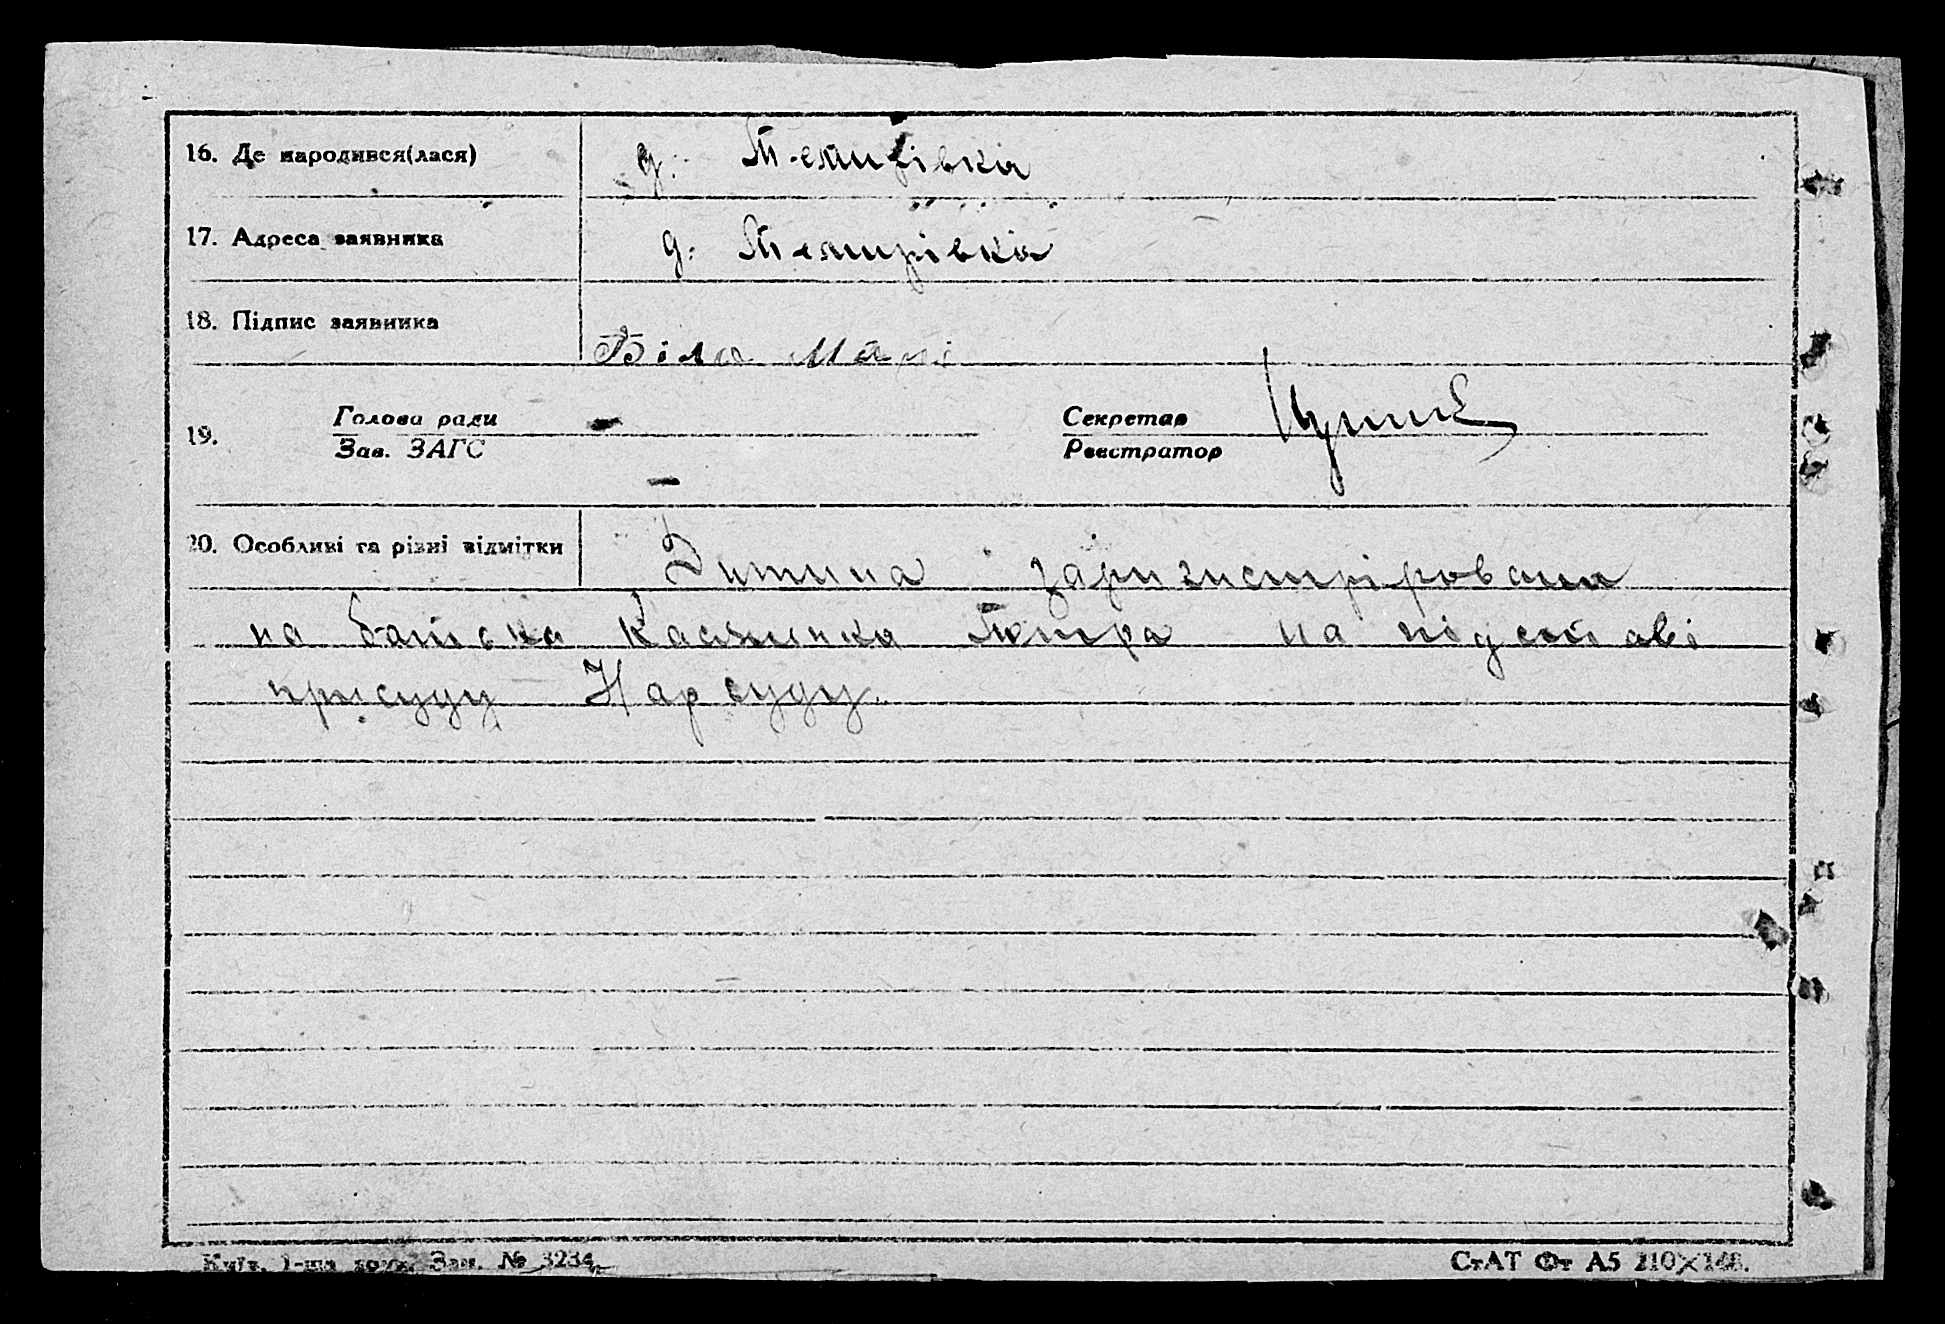 16. Де народився(лася)
д. Темирівка
17. Адреса заявника
д. Темирівка
18. Підпис заявника
Біла Марі
19. Голова ради
Зав. ЗАГС
Секретар
Реєстратор
20. Особливі та різні відмітки
Дитина заригистрірована
на батька Касяненка Петра на підставі
присуду Нарсуду.
Київ, 1-ша друк. Зам. № 3234
СтАТ Фт А5 210×148.